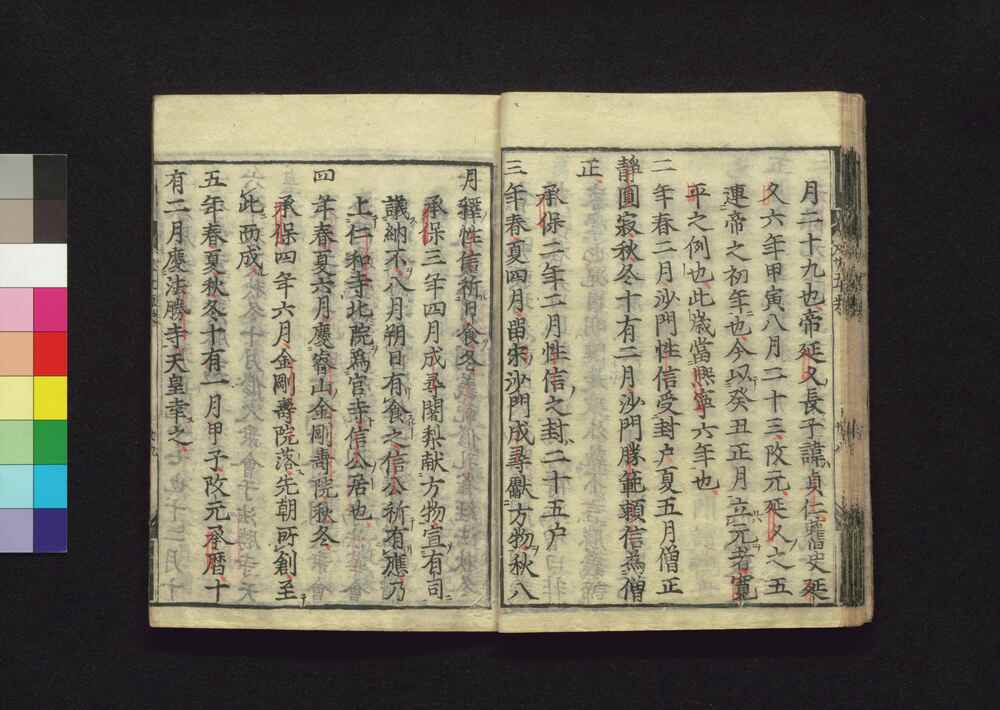 月二十九也帝延久長子諱貞仁舊史延
久六年甲寅八月二十三改元延久之五
連帝之初年也今以癸丑正月立元者寬
平之例也此歲當熈寧六年也
二年春二月沙門性信受封戶夏五月僧正
靜圓寂秋冬十有二月沙門勝範賴信為僧
正
承保二年二月性信之封二十五户
三年春夏四月留宋沙門成尋獻方物秋八
月釋性信祈日食冬
承保三年四月成尋闍梨献方物宣有司
議納不八月朔日有食之信公祈有應乃
上仁和寺北院為官寺信公居也
四年春夏六月慶睿山金剛壽院秋冬
承保四年六月金剛壽院落先朝所創至
此而成
五年春夏秋冬十有一月甲子改元承曆十
有二月慶法勝寺天皇幸之